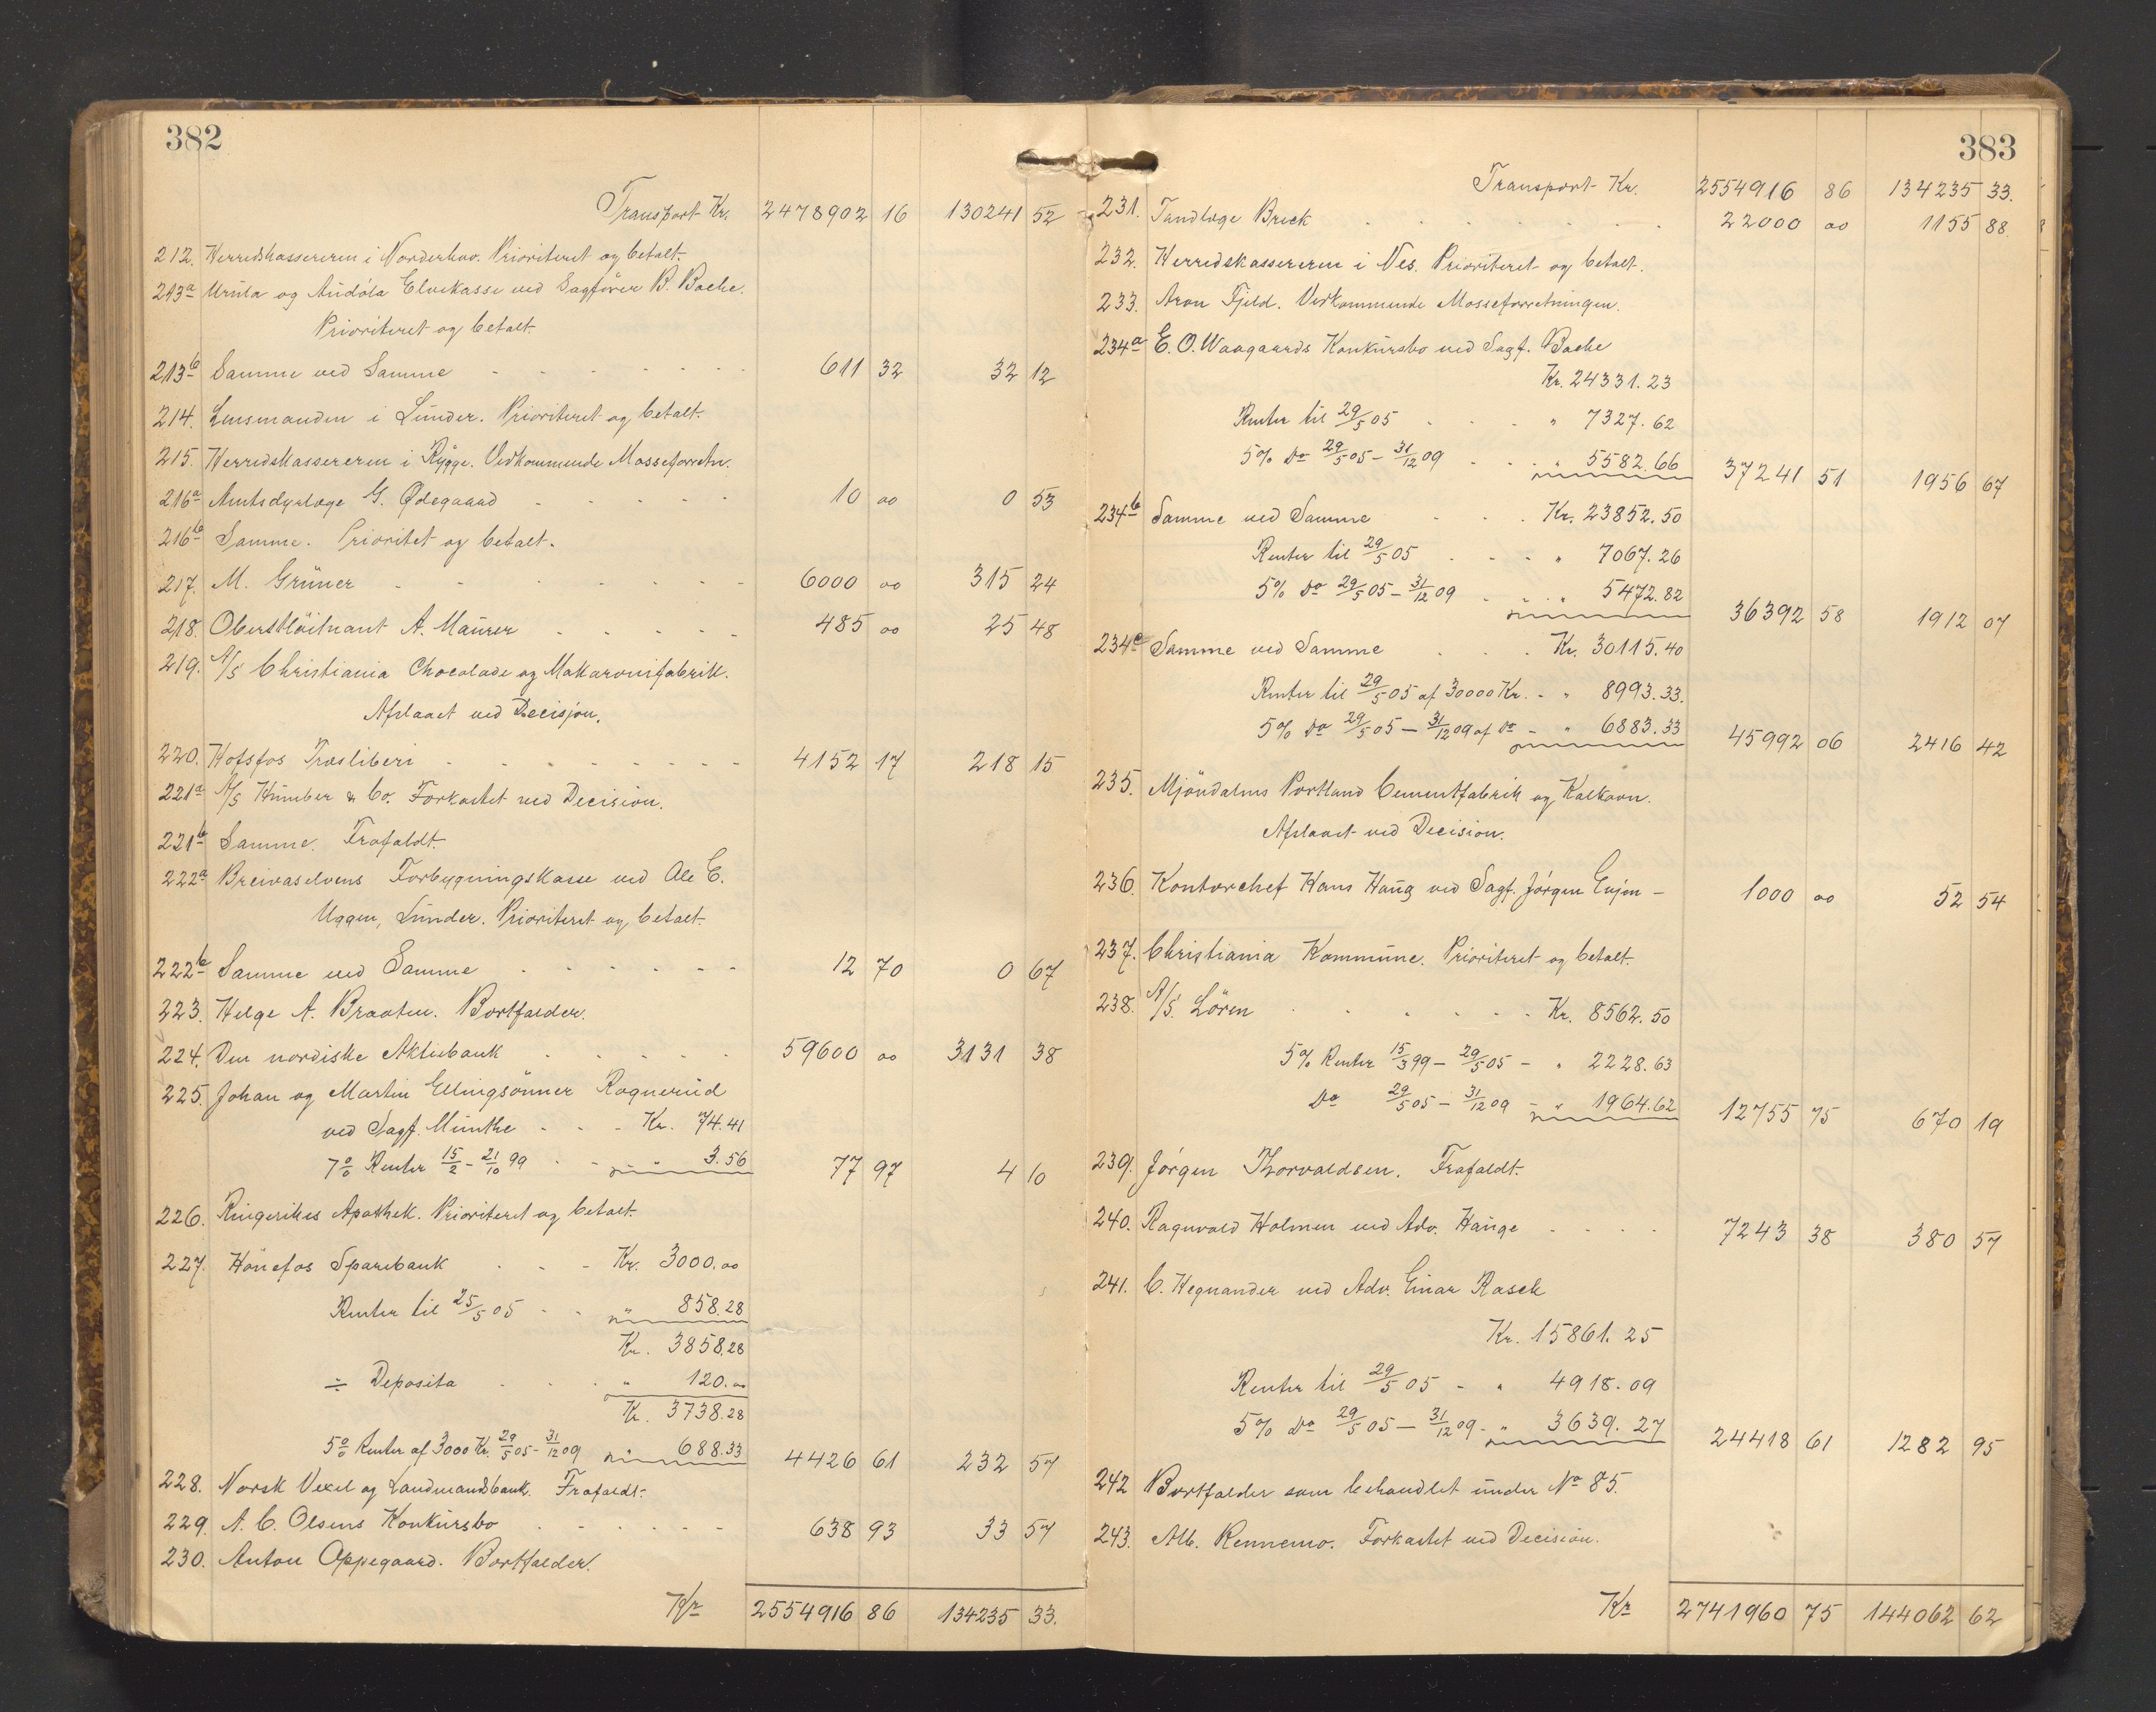 382
Transport Kr. 2478902 16 130241 52
212. Herredskassereren i Norderhov. Prioriteret og betalt.
213a Urula og Audøla Elvekasse ved Sagfører B. Bache.
Prioriteret og betalt.
213b Samme ved Samme 611 32 32 12
214. Lensmanden i Lunder. Prioriteret og betalt.
215. Herredskassereren i Rygge. Vedkommende Masseforretn.
216a Amtsdyrlæge G. Ødegaard 10 00 0 53
216b Samme. Prioritet og betalt.
217. M. Grüner 6000 00 315 24
218. Oberstlöitnant A. Maurer 485 00 25 48
219. A/S Christiania Chocolade og Makaronifabrik.
Afslaaet ved Decisjon.
220. Hofsfos Træsliberi 4152 17 218 15
221a A/S Humber & Co. Forkastet ved Decision.
221b Samme. Frafaldt.
222a Breivaselvens Forbygningskasse ved Ole E.
Uggen, Lunder. Prioriteret og betalt.
222b Samme ved Samme 12 70 0 67
223. Helge A. Braaten. Bortfalder.
224. Den nordiske Aktiebank 59600 00 3131 38
225. Johan og Martin Ellingsönner Rognerud
ved Sagf. Munthe - - - Kr. 74.41
7% Renter 15/2 - 21/10 99 - - " 3.56 77 97 4 10
226. Ringerikes Apothek. Prioriteret og betalt.
227. Hönefos Sparebank - - - Kr. 3000.00
Renter til 25/5 05 - - " 858.28
Kr. 3858.28
÷ Deposita " 120.00
Kr. 3738.28
5% Renter af 3000 Kr. 29/5 05 - 31/12 09 " 688.33 4426 61 232 57
228. Norsk Vexel og Landmandsbank. Frafaldt.
229. A. C. Olsens Konkursbo 638 93 33 57
230. Anton Oppegaard. Bortfalder.
Kr 2554916 86 134235 33.
383
Transport Kr. 2554916 86 134235 33.
231. Tandlæge Breck 22000 00 1155 88.
232. Herredskassereren i Nes. Prioriteret og betalt.
233. Aron Fjeld. Vedkommende Masseforretningen.
234a E. O. Waagaards Konkursbo ved Sagf. Bache
Kr. 24331.23
Renter til 29/5 05 " 7327.62
5% Do 29/5 05 - 31/12 09 " 5582.66 37241 51 1956 67
234b Samme ved Samme Kr. 23852.50
Renter til 29/5 05 " 7067.26
5% Do 29/5 05 - 31/12 09 " 5472.82 36392 58 1912 07
234c Samme ved Samme Kr. 30115.40
Renter til 29/5 05 af 30000 Kr. - " 8993.33.
5% Do 29/5 05 - 31/12 09 af Do - " 6883.33 45992 06 2416 42
235. Mjöndalens Portland Cementfabrik og Kalkovn.
Afslaaet ved Decision.
236. Kontorchef Hans Haug ved Sagf. Jørgen Evjen - 1000 00 52 54
237. Christiania Kommune. Prioriteret og betalt.
238. A/S. Lören - - Kr. 8562.50
5% Renter 15/3 99 - 29/5 05 - " 2228.63
Do 29/5 05 - 31/12 09 - " 1964.62 12755 75 670 19
239. Jørgen Thorvaldsen. Frafaldt.
240. Ragnvald Holmen ved Adv. Hauge 7243 38 380 57
241. C. Hegnander ved Adv. Einar Rasch
Kr. 15861.25
Renter til 29/5 05 - " 4918.09
5% Do 29/5 05 - 31/12 09 - " 3639.27 24418 61 1282 95
242 Bortfalder som behandlet under No 85.
243. Alb. Rennemo. Forkastet ved Decision.
Kr 2741960 75 144062 62